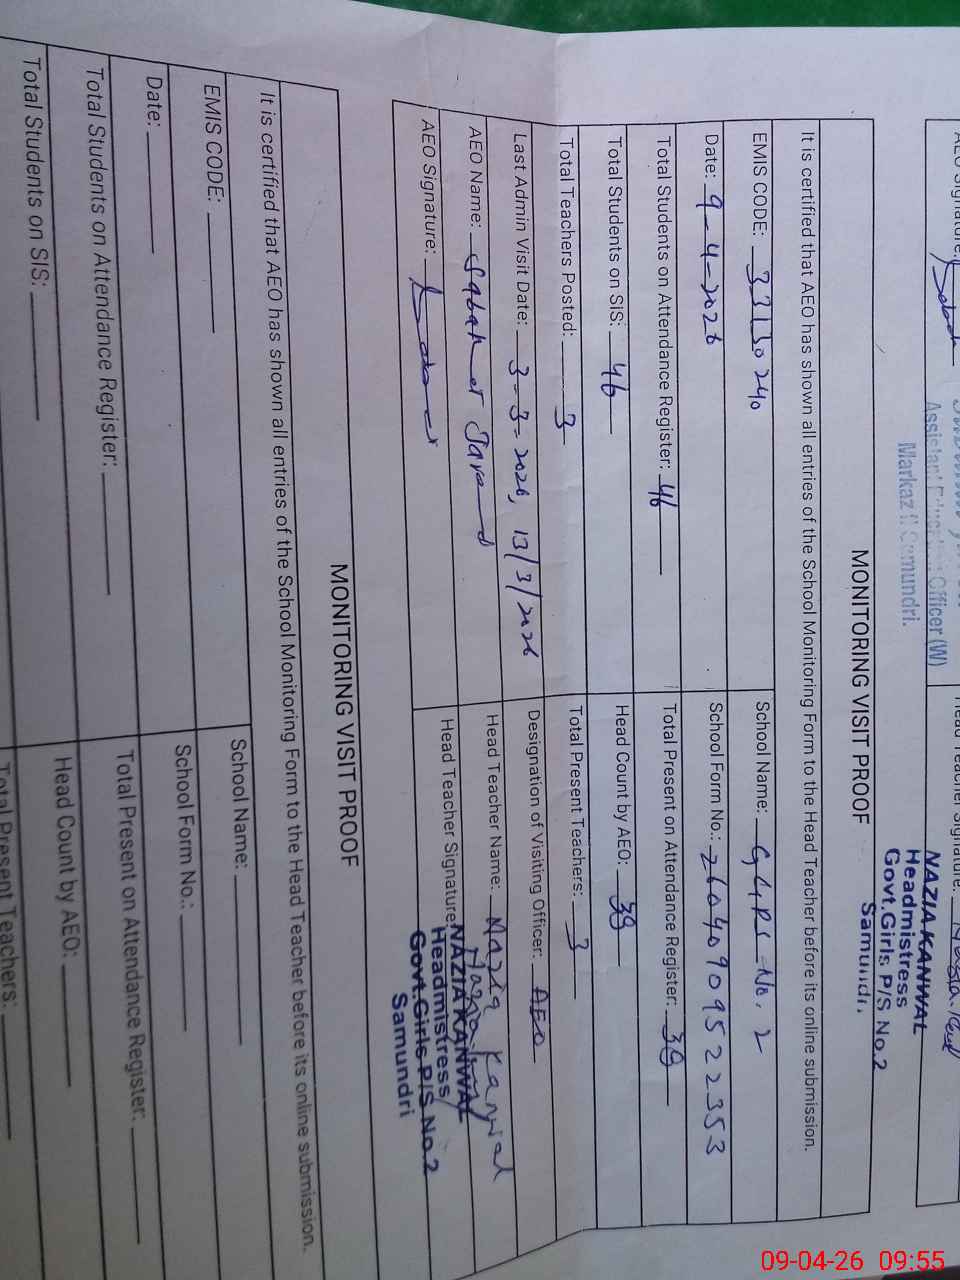 AEO Signature:
Head Teacher Signature:
Assistant Education Officer (W)
Markaz Samundri.
NAZIA KANWAL
Headmistress
Govt.Girls P/S No.2
Samundri.
MONITORING VISIT PROOF
It is certified that AEO has shown all entries of the School Monitoring Form to the Head Teacher before its online submission.
EMIS CODE: 33130240 School Name: GGPS No. 2
Date: 9-4-2026 School Form No.: 26040909522353
Total Students on Attendance Register: 46 Total Present on Attendance Register: 39
Total Students on SIS: 46 Head Count by AEO: 39
Total Teachers Posted: 3 Total Present Teachers: 3
Last Admin Visit Date: 3-3-2026, 13/3/2026 Designation of Visiting Officer: AEO
AEO Name: Sabahat Javaid Head Teacher Name: Nazia Kanwal
AEO Signature: Head Teacher Signature:
NAZIA KANWAL
Headmistress
Govt.Girls P/S No.2
Samundri
MONITORING VISIT PROOF
It is certified that AEO has shown all entries of the School Monitoring Form to the Head Teacher before its online submission.
EMIS CODE: School Name:
Date: School Form No.:
Total Students on Attendance Register: Total Present on Attendance Register:
Total Students on SIS: Head Count by AEO:
Total Present Teachers:
09-04-26 09:55